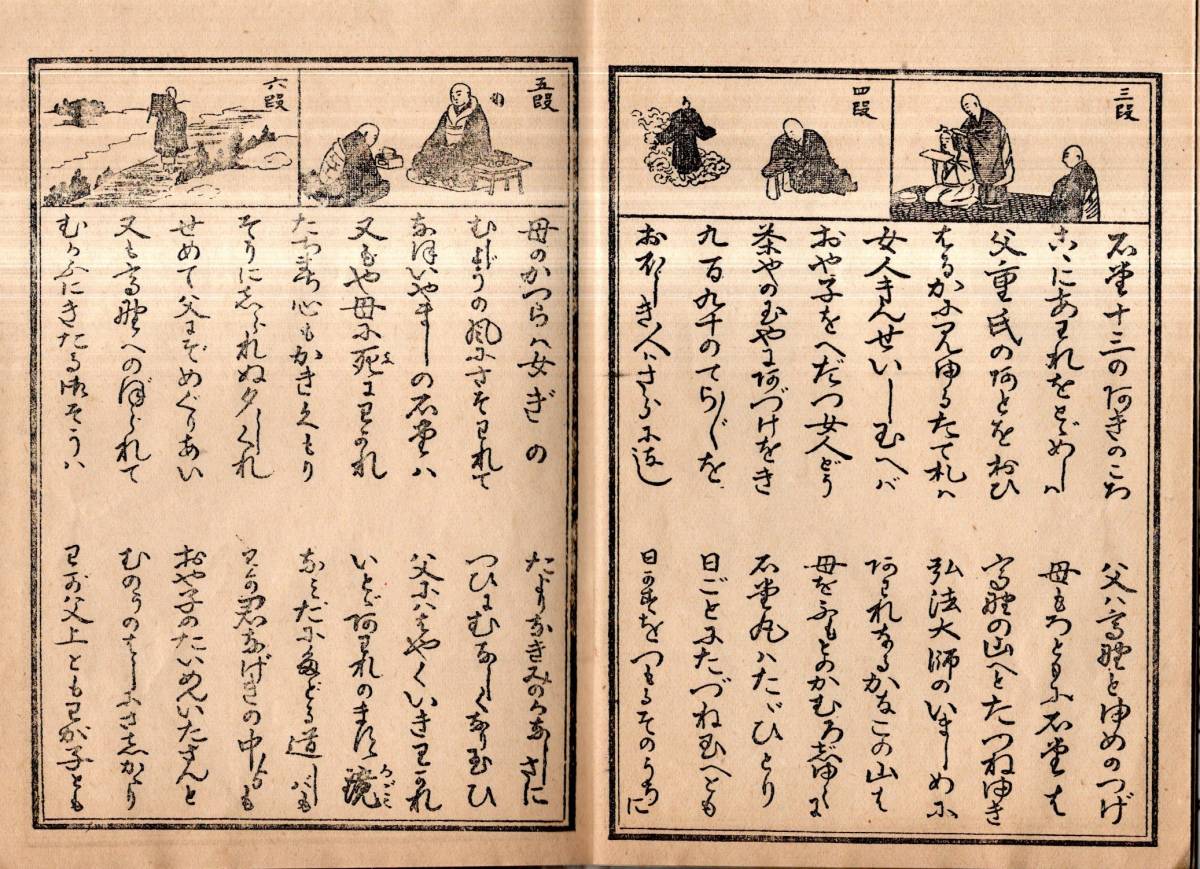 三段
四段
石堂十三の阿きのころ
父ハ高野とゆめのつげ
こゝにあわれをとゞめしハ
母もろともに石堂は
父重氏の阿とをおひ
高野の山へとたつねゆき
はるかにみゆるたて札ハ
弘法大師のいましめに
女人きんせい
阿われなるかなこの山は
おや子をへだつ女人どう
母をふもとのかむろ
茶やの玉やに阿づけをき
石堂丸ハたゞひとり
九百九十のてら〴〵を
日ごとにたづね玉へども
おぼしき人ハさらに
日かずをつもるそのうちに
五段
六段
母のかつらハ女ぎの
たよりなきみのかなしさに
むじようの風にさそわれて
つひにむなしくなり玉ひ
なほいやましの石堂ハ
父にハはやくいきわかれ
又もや母に死にわかれ
いとゞ阿われのます鏡
たちまち心もかきくもり
なみだにたどる道しバも
しられぬ夕
わが君なげきの中よりも
せめて父にぞめぐりあい
おや子のたいめんいたさんと
又も高野へのぼられて
むのうのはしにさしかゝり
むかふにきたる御そうハ
わが父上ともわが子とも